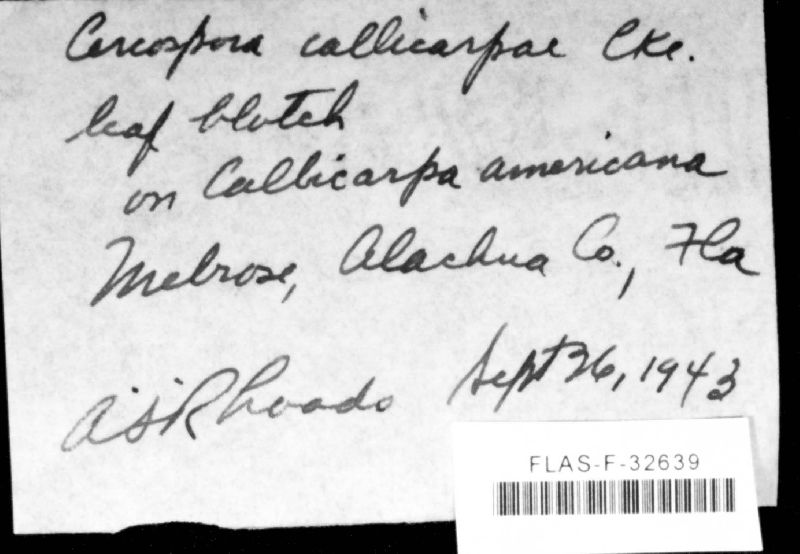 Cercospora callicarpae Cke.
leaf blotch
on Callicarpa americana
Melrose, Alachua Co., Fla
A.S. Rhoads Sept 26, 1943
FLAS-F-32639